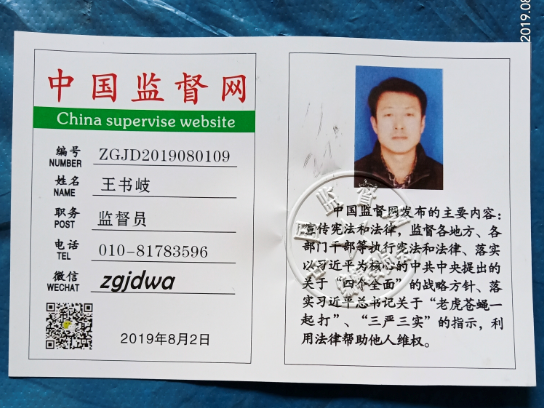 2019.08
中国监督网
China supervise website
编号 ZGJD2019080109
NUMBER
姓名 王书岐
NAME
职务 监督员
POST
电话 010-81783596
TEL
微信 zgjdwa
WECHAT
2019年8月2日
中国监督网发布的主要内容：
宣传宪法和法律，监督各地方、各
部门干部等执行宪法和法律、落实
以习近平为核心的中共中央提出的
关于“四个全面”的战略方针、落
实习近平总书记关于“老虎苍蝇一
起打”、“三严三实”的指示，利
用法律帮助他人维权。